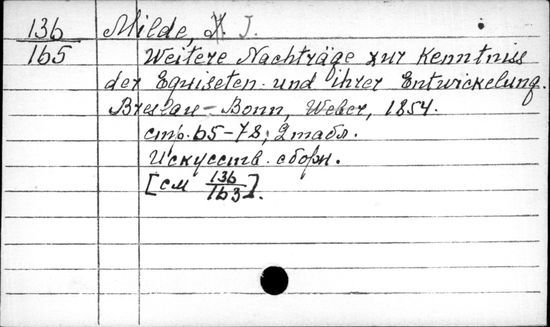 136 Milde, J.
165 Weitere Nachträge zur Kenntniss
der Equiseten und ihrer Entwickelung.
Breslau-Bonn, Weber, 1854.
стр. 65-78; 2 табл.
Искусств. сборн.
[см 136
163].